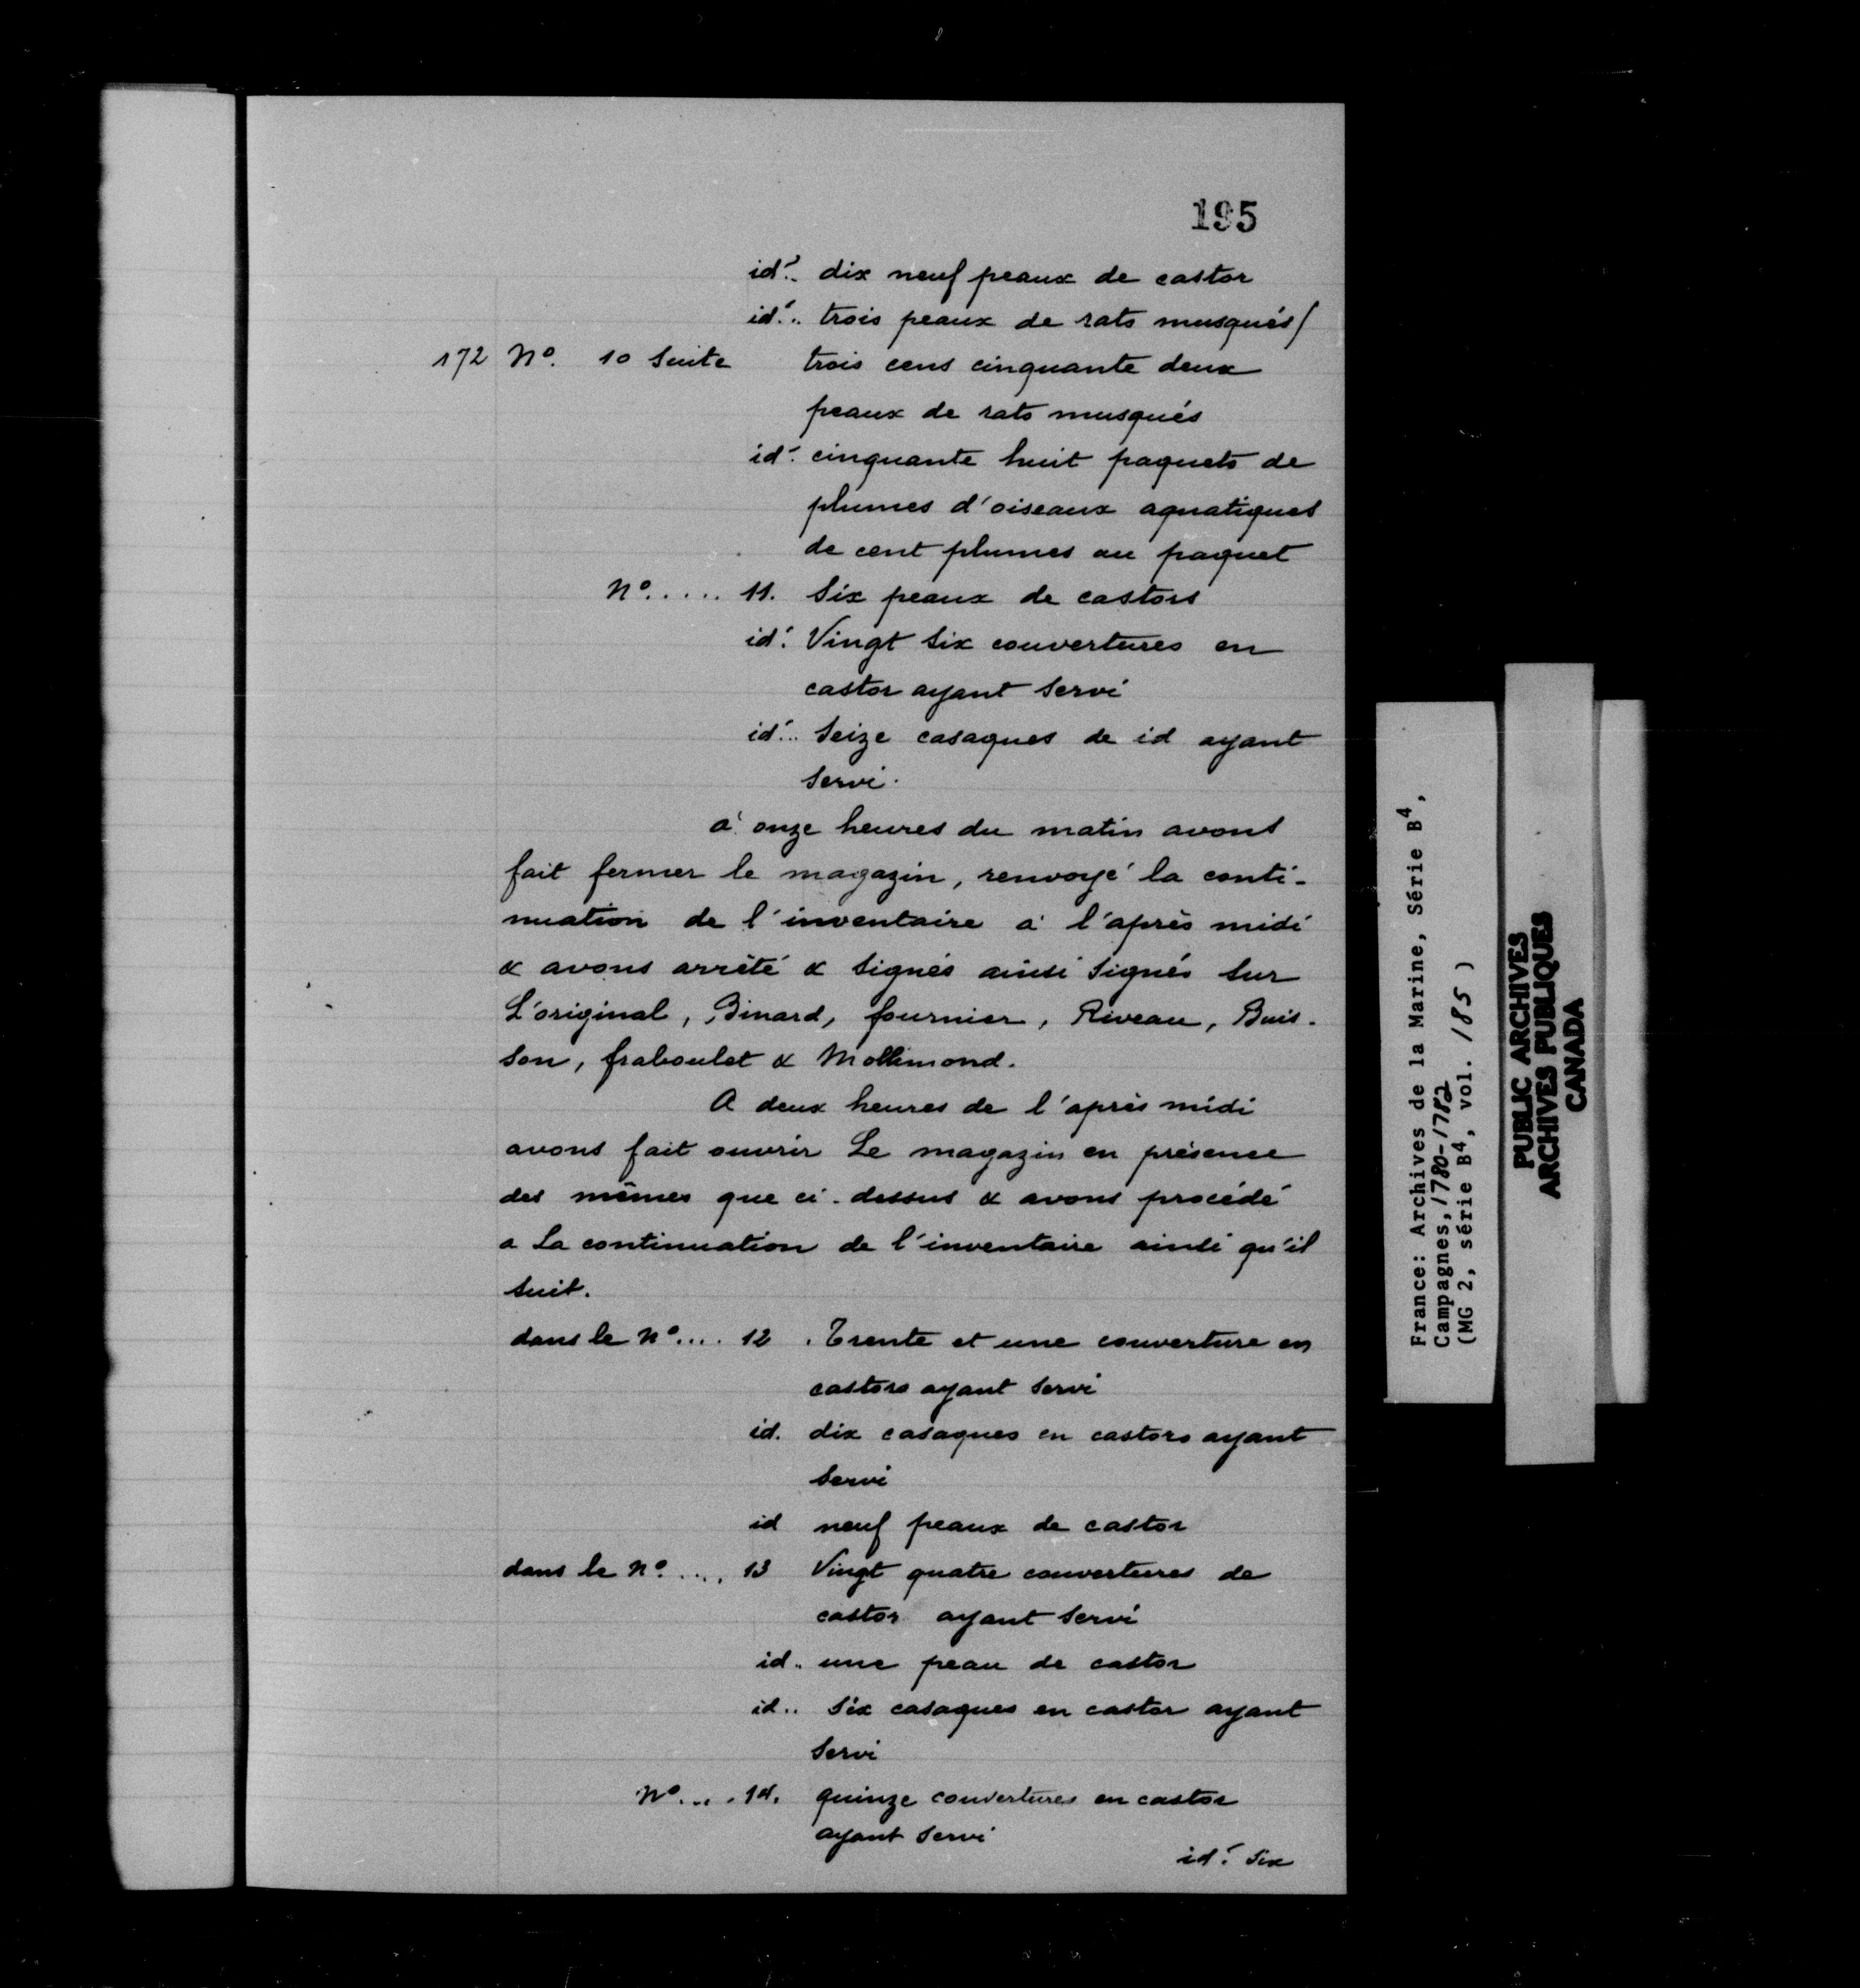 195
id. dix neuf peaux de castor
id... trois peaux de rats musqués/
172 No. 10 Suite trois cens cinquante deux
peaux de rats musqués
id. cinquante huit paquets de
plumes d'oiseaux aquatiques
de cent plumes au paquet
No..... 11. Six peaux de castors
id. Vingt Six couvertures en
castor ayant Servi
id... Seize casaques de id ayant
Servi.
à onze heures du matin avons
fait fermer le magazin, renvoyé la conti-
nuation de l'inventaire à l'après midi
& avons arrêté & Signés ainsi Signés Sur
L'original, Binard, fournier, Riveau, Buis-
son, fraboulet & Mollimond.
A deux heures de l'après midi
avons fait ouvrir Le magazin en présence
des mêmes que ci-dessus & avons procédé
a La continuation de l'inventaire ainsi qu'il
Suit.
dans le No.... 12 . Trente et une couverture en
castors ayant Servi
id. dix casaques en castors ayant
Servi
id neuf peaux de castor
dans le No..... 13 Vingt quatre couvertures de
castor ayant Servi
id.. une peau de castor
id.. Six casaques en castor ayant
Servi
No.... 14. quinze couvertures en castor
ayant Servi
id. Six
France: Archives de la Marine, Série B4,
Campagnes, 1780-1782
(MG 2, série B4, vol. 185 )
PUBLIC ARCHIVES
ARCHIVES PUBLIQUES
CANADA